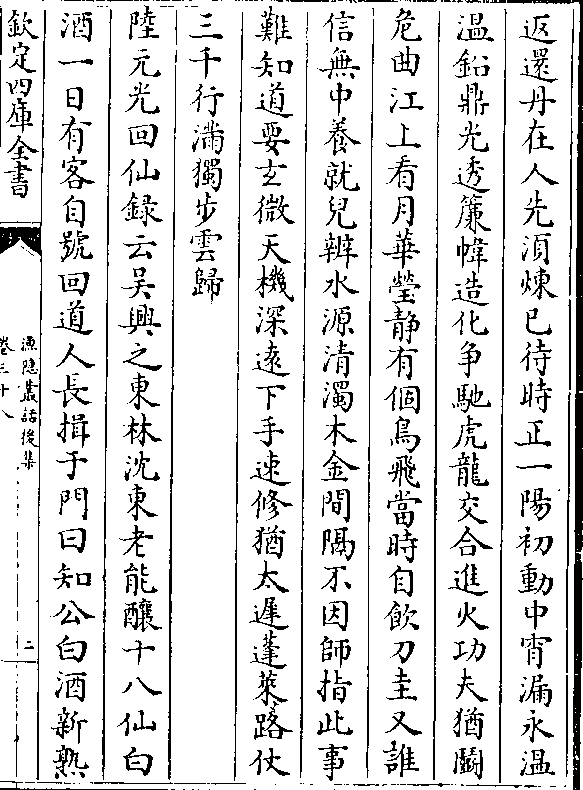 返還丹在人先湏煉已待時正一陽初動中宵漏永温
温鉛鼎光透簾幃造化争馳虎龍交合進火功夫猶鬬
危曲江上看月華瑩静有個鳥飛當時自飲刀圭又誰
信無中養就兒辨水源清濁木金間隔不因師指此事
難知道要玄微天機深逺下手速修猶太遲蓬萊路仗
三千行滿獨步雲歸
陸元光回仙録云吴興之東林沈東老能釀十八仙白
酒一日有客自號回道人長揖于門曰知公白酒新熟
欽定四庫全書
漁隠叢話後集
卷三十八
二